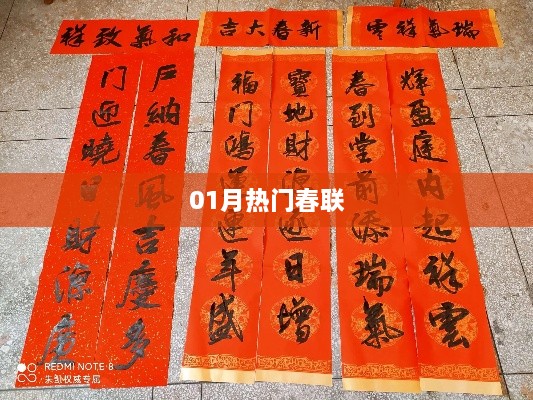 和氣致祥
新春大吉
瑞氣祥雲
戶納春風吉慶多
門迎曉日財源廣
寶地財源日增
福門鴻運年盛
輝盈庭內起祥雲
春到堂前添瑞氣
01月热门春联
REDMI NOTE 8
朱凯权威专属